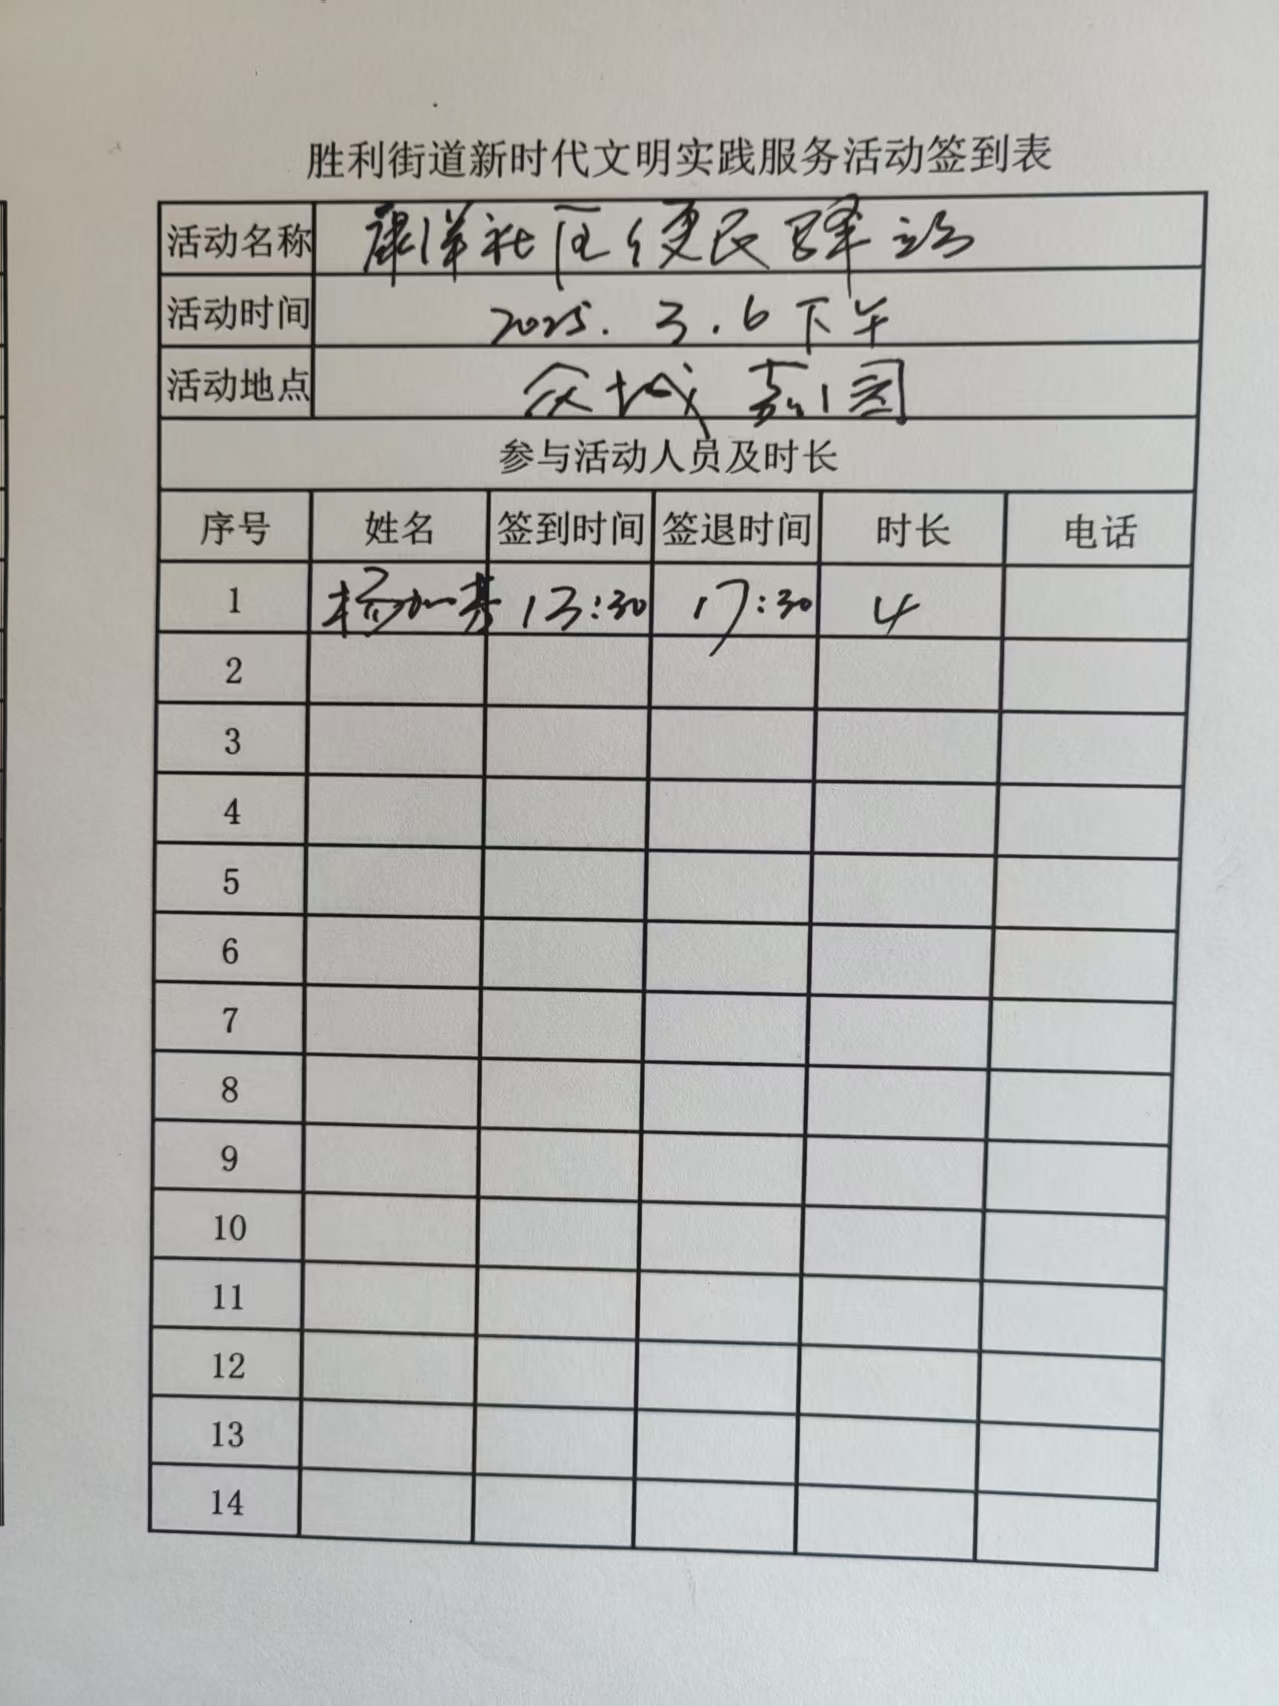 胜利街道新时代文明实践服务活动签到表
活动名称 康洋社区便民驿站
活动时间 2025.3.6下午
活动地点 众城嘉园
参与活动人员及时长
序号 姓名 签到时间 签退时间 时长 电话
1 杨加芬 13:30 17:30 4
2
3
4
5
6
7
8
9
10
11
12
13
14